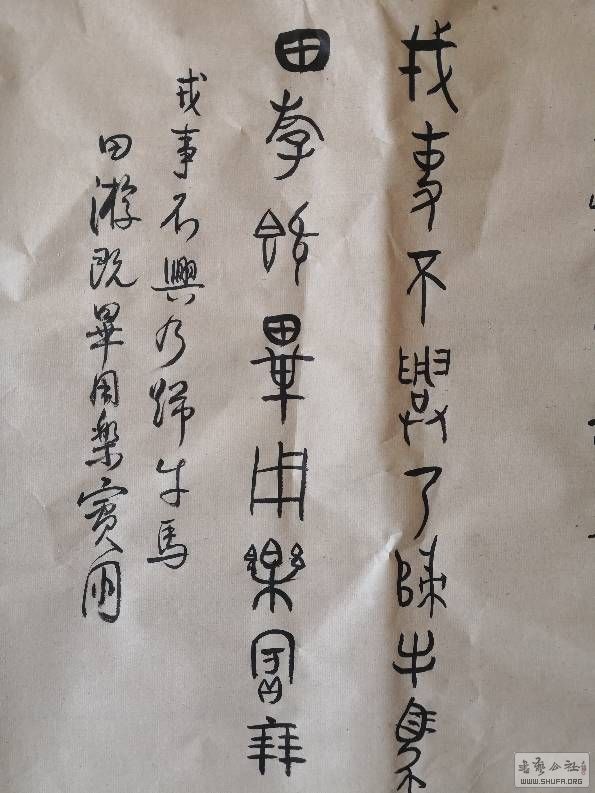 戎事不興乃歸牛馬
田游既畢用樂賓朋
戎事不興乃歸牛馬
田游既畢用樂賓朋
书艺公社
WWW.SHUFA.ORG